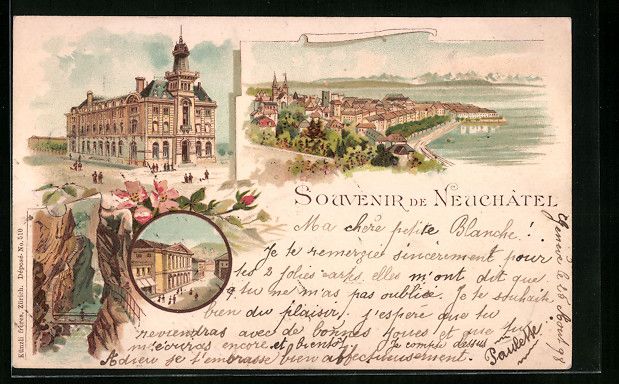 SOUVENIR DE NEUCHÂTEL
Ma chère petite Blanche!
Je te remercie sincèrement pour
tes 2 jolies cartes elles m'ont dit que
tu ne m'as pas oubliée. Je te souhaite
bien du plaisir, j'espère que tu
reviendras avec de bonnes joues et que tu
m'écriras encore et bientôt. Je compte dessus
Adieu je t'embrasse bien affectueusement.
Paulette
Künzli frères, Zürich. Déposé-No. 510